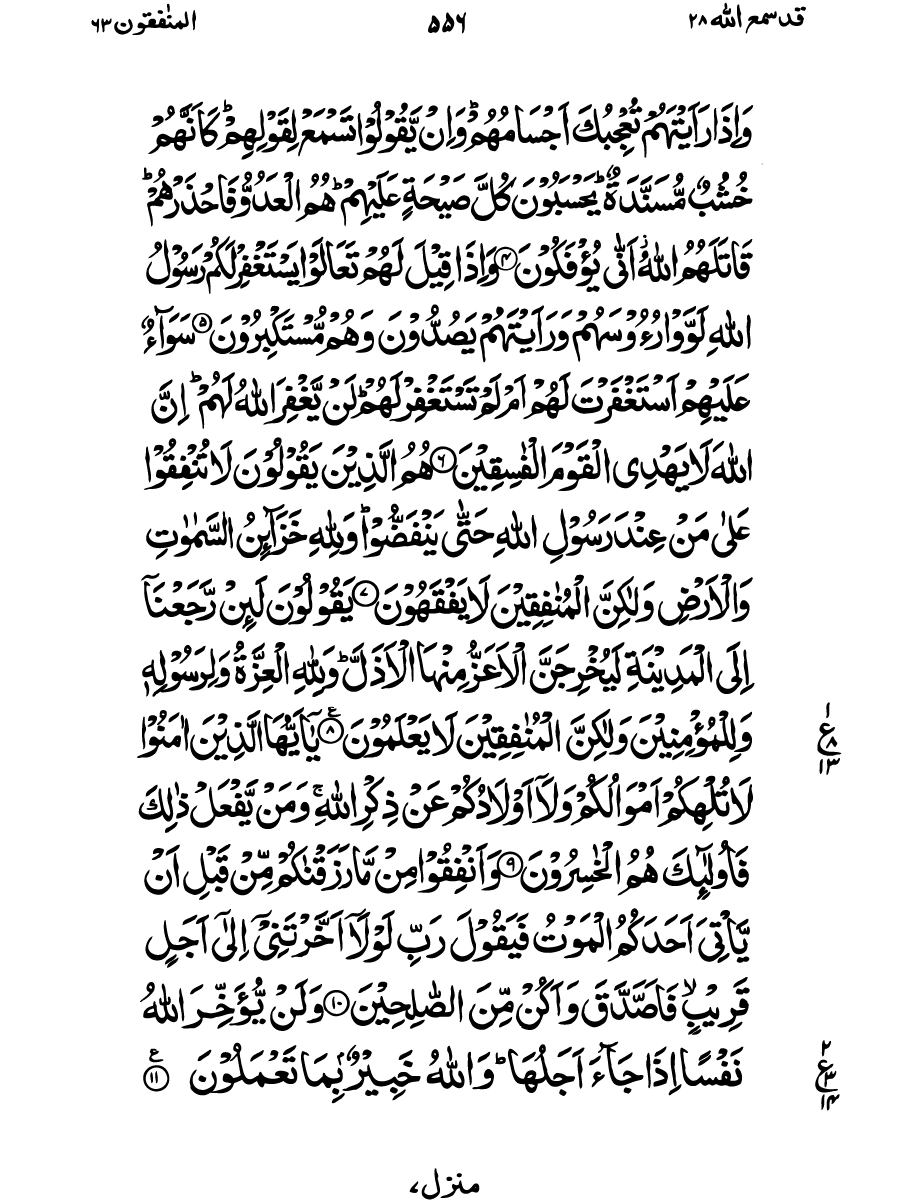 قد سمع الله ٢٨
٥٥٦
المنٰفقون ٦٣
وَاِذَا رَاَيْتَهُمْ تُعْجِبُكَ اَجْسَامُهُمْ ؕ وَاِنْ يَّقُوْلُوْا تَسْمَعْ لِقَوْلِهِمْ ؕ كَاَنَّهُمْ
خُشُبٌ مُّسَنَّدَةٌ ؕ يَحْسَبُوْنَ كُلَّ صَيْحَةٍ عَلَيْهِمْ ؕ هُمُ الْعَدُوُّ فَاحْذَرْهُمْ ؕ
قَاتَلَهُمُ اللّٰهُ ؗ اَنّٰى يُؤْفَكُوْنَ ۝۴ وَاِذَا قِيْلَ لَهُمْ تَعَالَوْا يَسْتَغْفِرْ لَكُمْ رَسُوْلُ
اللّٰهِ لَوَّوْا رُءُوْسَهُمْ وَرَاَيْتَهُمْ يَصُدُّوْنَ وَهُمْ مُّسْتَكْبِرُوْنَ ۝۵ سَوَآءٌ
عَلَيْهِمْ اَسْتَغْفَرْتَ لَهُمْ اَمْ لَمْ تَسْتَغْفِرْ لَهُمْ ؕ لَنْ يَّغْفِرَ اللّٰهُ لَهُمْ ؕ اِنَّ
اللّٰهَ لَا يَهْدِى الْقَوْمَ الْفٰسِقِيْنَ ۝۶ هُمُ الَّذِيْنَ يَقُوْلُوْنَ لَا تُنْفِقُوْا
عَلٰى مَنْ عِنْدَ رَسُوْلِ اللّٰهِ حَتّٰى يَنْفَضُّوْا ؕ وَلِلّٰهِ خَزَآئِنُ السَّمٰوٰتِ
وَالْاَرْضِ وَلٰكِنَّ الْمُنٰفِقِيْنَ لَا يَفْقَهُوْنَ ۝۷ يَقُوْلُوْنَ لَئِنْ رَّجَعْنَاۤ
اِلَى الْمَدِيْنَةِ لَيُخْرِجَنَّ الْاَعَزُّ مِنْهَا الْاَذَلَّ ؕ وَلِلّٰهِ الْعِزَّةُ وَلِرَسُوْلِهٖ
وَلِلْمُؤْمِنِيْنَ وَلٰكِنَّ الْمُنٰفِقِيْنَ لَا يَعْلَمُوْنَ ۝۸ ع يٰۤاَيُّهَا الَّذِيْنَ اٰمَنُوْا
١ ع ٨ ١٣
لَا تُلْهِكُمْ اَمْوَالُكُمْ وَلَاۤ اَوْلَادُكُمْ عَنْ ذِكْرِ اللّٰهِ ۚ وَمَنْ يَّفْعَلْ ذٰلِكَ
فَاُولٰٓئِكَ هُمُ الْخٰسِرُوْنَ ۝۹ وَاَنْفِقُوْا مِنْ مَّا رَزَقْنٰكُمْ مِّنْ قَبْلِ اَنْ
يَّاْتِىَ اَحَدَكُمُ الْمَوْتُ فَيَقُوْلَ رَبِّ لَوْلَاۤ اَخَّرْتَنِىْۤ اِلٰٓى اَجَلٍ
قَرِيْبٍ ۙ فَاَصَّدَّقَ وَاَكُنْ مِّنَ الصّٰلِحِيْنَ ۝۱۰ وَلَنْ يُّؤَخِّرَ اللّٰهُ
نَفْسًا اِذَا جَآءَ اَجَلُهَا ؕ وَاللّٰهُ خَبِيْرٌۢ بِمَا تَعْمَلُوْنَ ۝۱۱ ع
٢ ع ٣ ١٤
منزل ٧